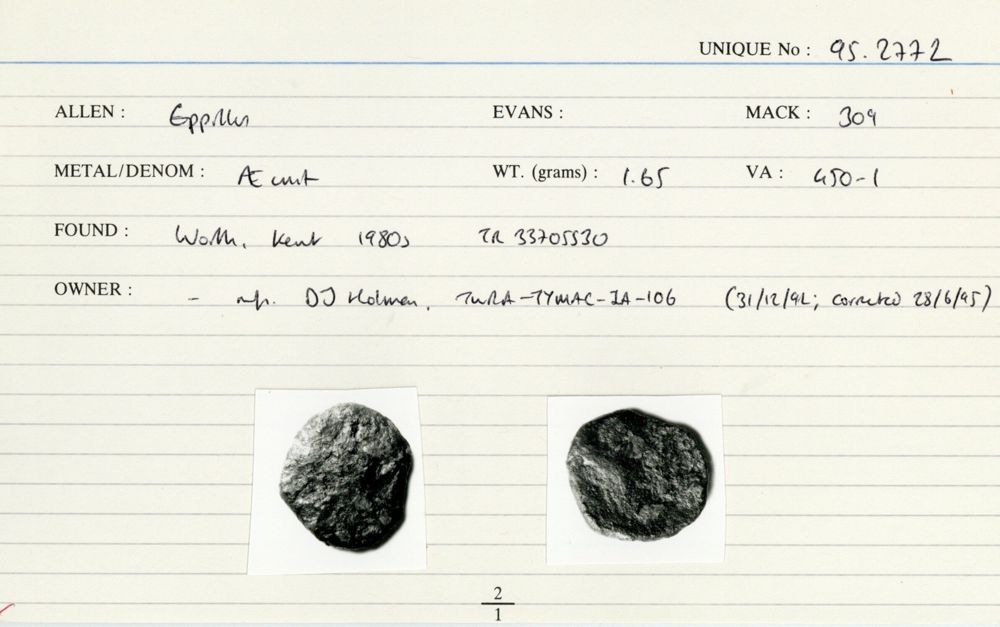 UNIQUE No : 95.2772
ALLEN : Eppillus EVANS : MACK : 309
METAL/DENOM : Æ unit WT. (grams) : 1.65 VA : 450-1
FOUND : Worth, Kent 1980s TR 33705530
OWNER : - DJ Holman, TWRA-TYMAC-IA-106 (31/12/92; corrected 28/6/95)
2
1